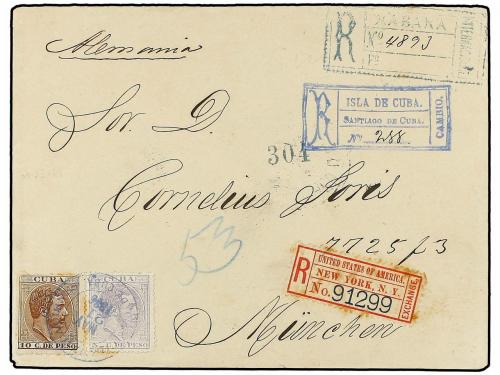 Alemania
R HABANA
Nº 4893
Sor. D.
R ISLA DE CUBA.
SANTIAGO DE CUBA.
Nº 288
CAMBIO.
304
Cornelius Joris
7725 f 3
53
R UNITED STATES OF AMERICA.
NEW YORK, N. Y.
No. 91299
EXCHANGE
München
CUBA
10 C. DE PESO
CUBA
C. DE PESO